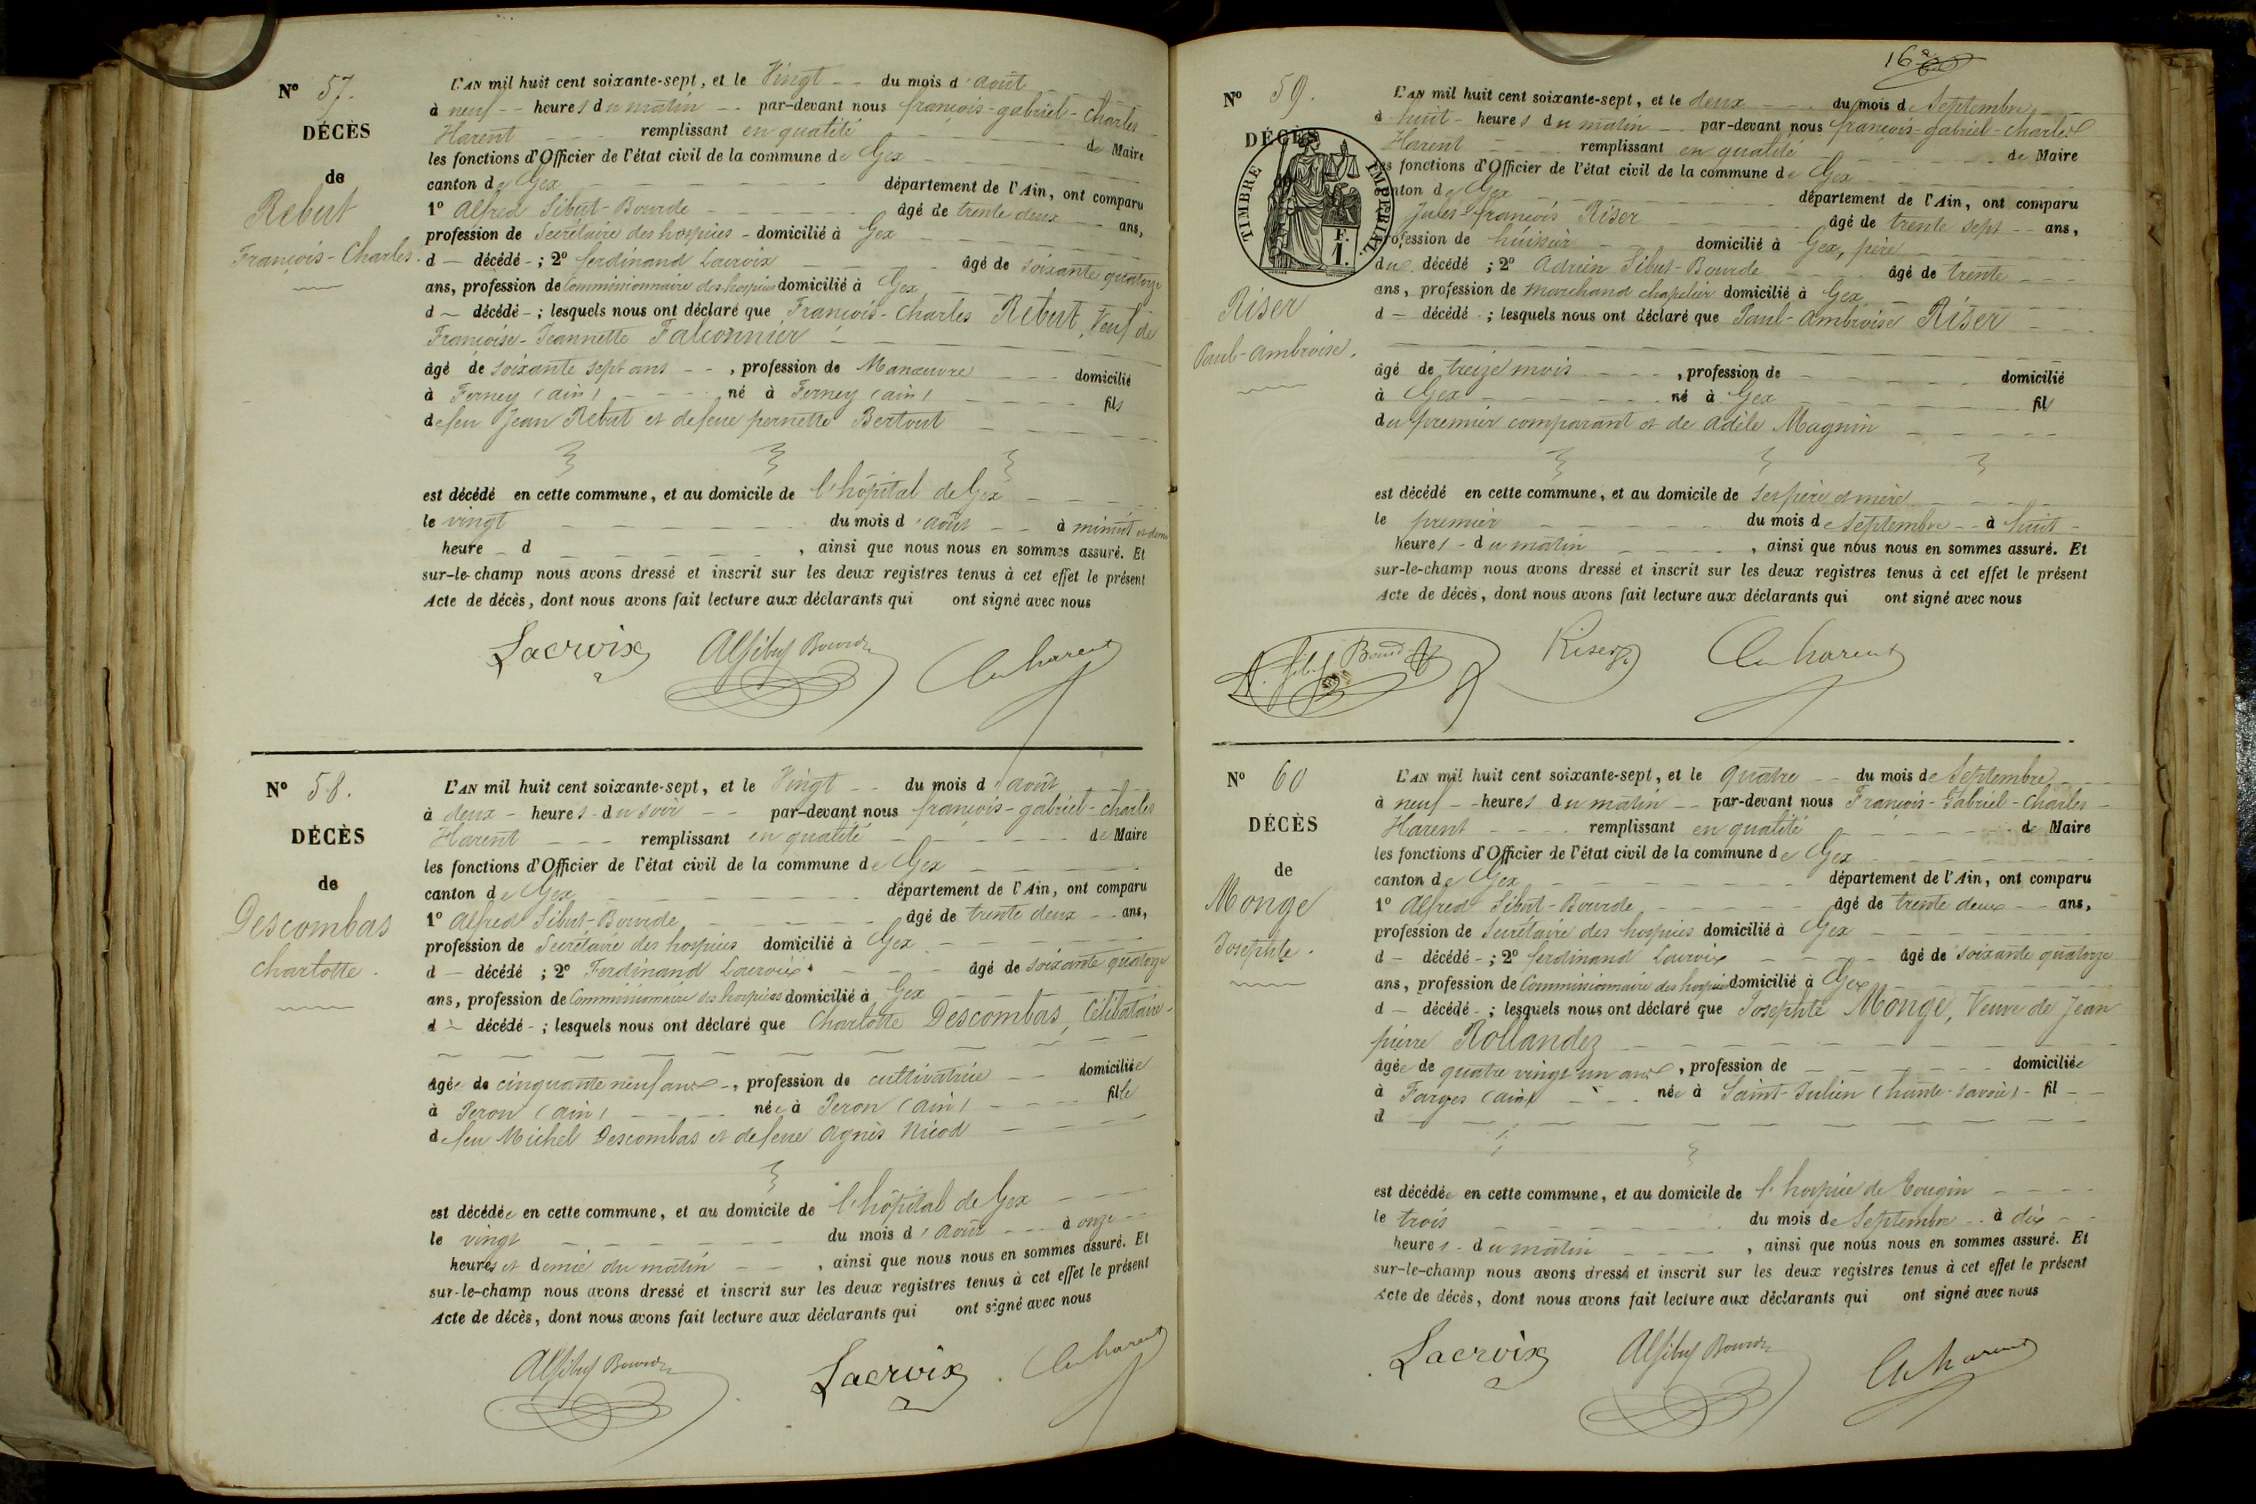 Nº 57.
DÉCÈS
de
Rebut
François-Charles.
L'AN mil huit cent soixante-sept, et le Vingt -- du mois d'août
à neuf -- heures du matin -- par-devant nous françois-gabriel-charles
Harent --- remplissant en qualité --- de Maire
les fonctions d'Officier de l'état civil de la commune de Gex
canton de Gex --- département de l'Ain, ont comparu
1º Alfred Sibut-Bourde --- âgé de trente deux -- ans,
profession de Secrétaire des hospices - domicilié à Gex
d — décédé - ; 2º ferdinand Lacroix --- âgé de soixante quatorze
ans, profession de Commissionnaire des hospices domicilié à Gex
d — décédé - ; lesquels nous ont déclaré que François-Charles Rebut, Veuf de
Françoise-Jeannette Falconnier
âgé de soixante sept ans --, profession de Manœuvre --- domicilié
à Ferney (ain) --- né à Ferney (ain) --- fils
de feu Jean Rebut et de feue pernette Bertout
est décédé en cette commune, et au domicile de l'hôpital de Gex
le vingt --- du mois d'août -- à minuit et demi
heure - d ---, ainsi que nous nous en sommes assuré. Et
sur-le-champ nous avons dressé et inscrit sur les deux registres tenus à cet effet le présent
Acte de décès, dont nous avons fait lecture aux déclarants qui ont signé avec nous
Lacroix Alf Sibut Bourde Ch harent
Nº 58.
DÉCÈS
de
Descombas
charlotte.
L'AN mil huit cent soixante-sept, et le Vingt -- du mois d'août
à deux - heures du soir -- par-devant nous françois-gabriel-charles
Harent --- remplissant en qualité --- de Maire
les fonctions d'Officier de l'état civil de la commune de Gex
canton de Gex --- département de l'Ain, ont comparu
1º Alfred Sibut-Bourde --- âgé de trente deux -- ans,
profession de Secrétaire des hospices domicilié à Gex
d — décédé ; 2º Ferdinand Lacroix --- âgé de soixante quatorze
ans, profession de Commissionnaire des hospices domicilié à Gex
d — décédé - ; lesquels nous ont déclaré que Charlotte Descombas, Célibataire
âgée de cinquante neuf ans -, profession de cultivatrice -- domiciliée
à Peron (ain) --- née à Peron (ain) --- fille
de feu Michel Descombas et de feue Agnès Nicod
est décédée en cette commune, et au domicile de l'hôpital de Gex
le vingt --- du mois d'août --- à onze
heures et demie du matin --, ainsi que nous nous en sommes assuré. Et
sur-le-champ nous avons dressé et inscrit sur les deux registres tenus à cet effet le présent
Acte de décès, dont nous avons fait lecture aux déclarants qui ont signé avec nous
Alf Sibut Bourde Lacroix Ch harent
16
Nº 59.
DÉCÈS
TIMBRE IMPÉRIAL.
F.
1.
Riser
Paul-ambroise.
L'AN mil huit cent soixante-sept, et le deux --- du mois de Septembre
à huit - heures du matin -- par-devant nous françois-gabriel-charles
Harent --- remplissant en qualité --- de Maire
les fonctions d'Officier de l'état civil de la commune de Gex
canton de Gex --- département de l'Ain, ont comparu
Jules-françois Riser --- âgé de trente sept -- ans,
profession de huissier --- domicilié à Gex, père
du décédé ; 2º Adrien Sibut-Bourde --- âgé de trente
ans, profession de marchand chapelier domicilié à Gex
d — décédé - ; lesquels nous ont déclaré que Paul-ambroise Riser
âgé de treize mois ---, profession de --- domicilié
à Gex --- né à Gex --- fils
du premier comparant et de adèle Magnin
est décédé en cette commune, et au domicile de ses père et mère
le premier --- du mois de Septembre -- à huit -
heures - du matin ---, ainsi que nous nous en sommes assuré. Et
sur-le-champ nous avons dressé et inscrit sur les deux registres tenus à cet effet le présent
Acte de décès, dont nous avons fait lecture aux déclarants qui ont signé avec nous
A. Sibut Bourde Riser Ch harent
Nº 60
DÉCÈS
de
Monge
Josephte.
L'AN mil huit cent soixante-sept, et le quatre -- du mois de Septembre
à neuf -- heures du matin -- par-devant nous François-Gabriel-Charles
Harent --- remplissant en qualité --- de Maire
les fonctions d'Officier de l'état civil de la commune de Gex
canton de Gex --- département de l'Ain, ont comparu
1º Alfred Sibut-Bourde --- âgé de trente deux -- ans,
profession de Secrétaire des hospices domicilié à Gex
d — décédé - ; 2º ferdinand Lacroix --- âgé de soixante quatorze
ans, profession de Commissionnaire des hospices domicilié à Gex
d — décédé - ; lesquels nous ont déclaré que Josephte Monge, Veuve de Jean
pierre Rollandez
âgée de quatre vingt un ans, profession de --- domiciliée
à Farges (ain) --- née à Saint-Julien (haute-savoie) - fil --
d ---
est décédée en cette commune, et au domicile de l'hospice de Tougin
le trois --- du mois de Septembre -- à dix
heures - du matin ---, ainsi que nous nous en sommes assuré. Et
sur-le-champ nous avons dressé et inscrit sur les deux registres tenus à cet effet le présent
Acte de décès, dont nous avons fait lecture aux déclarants qui ont signé avec nous
Lacroix Alf Sibut Bourde Ch harent